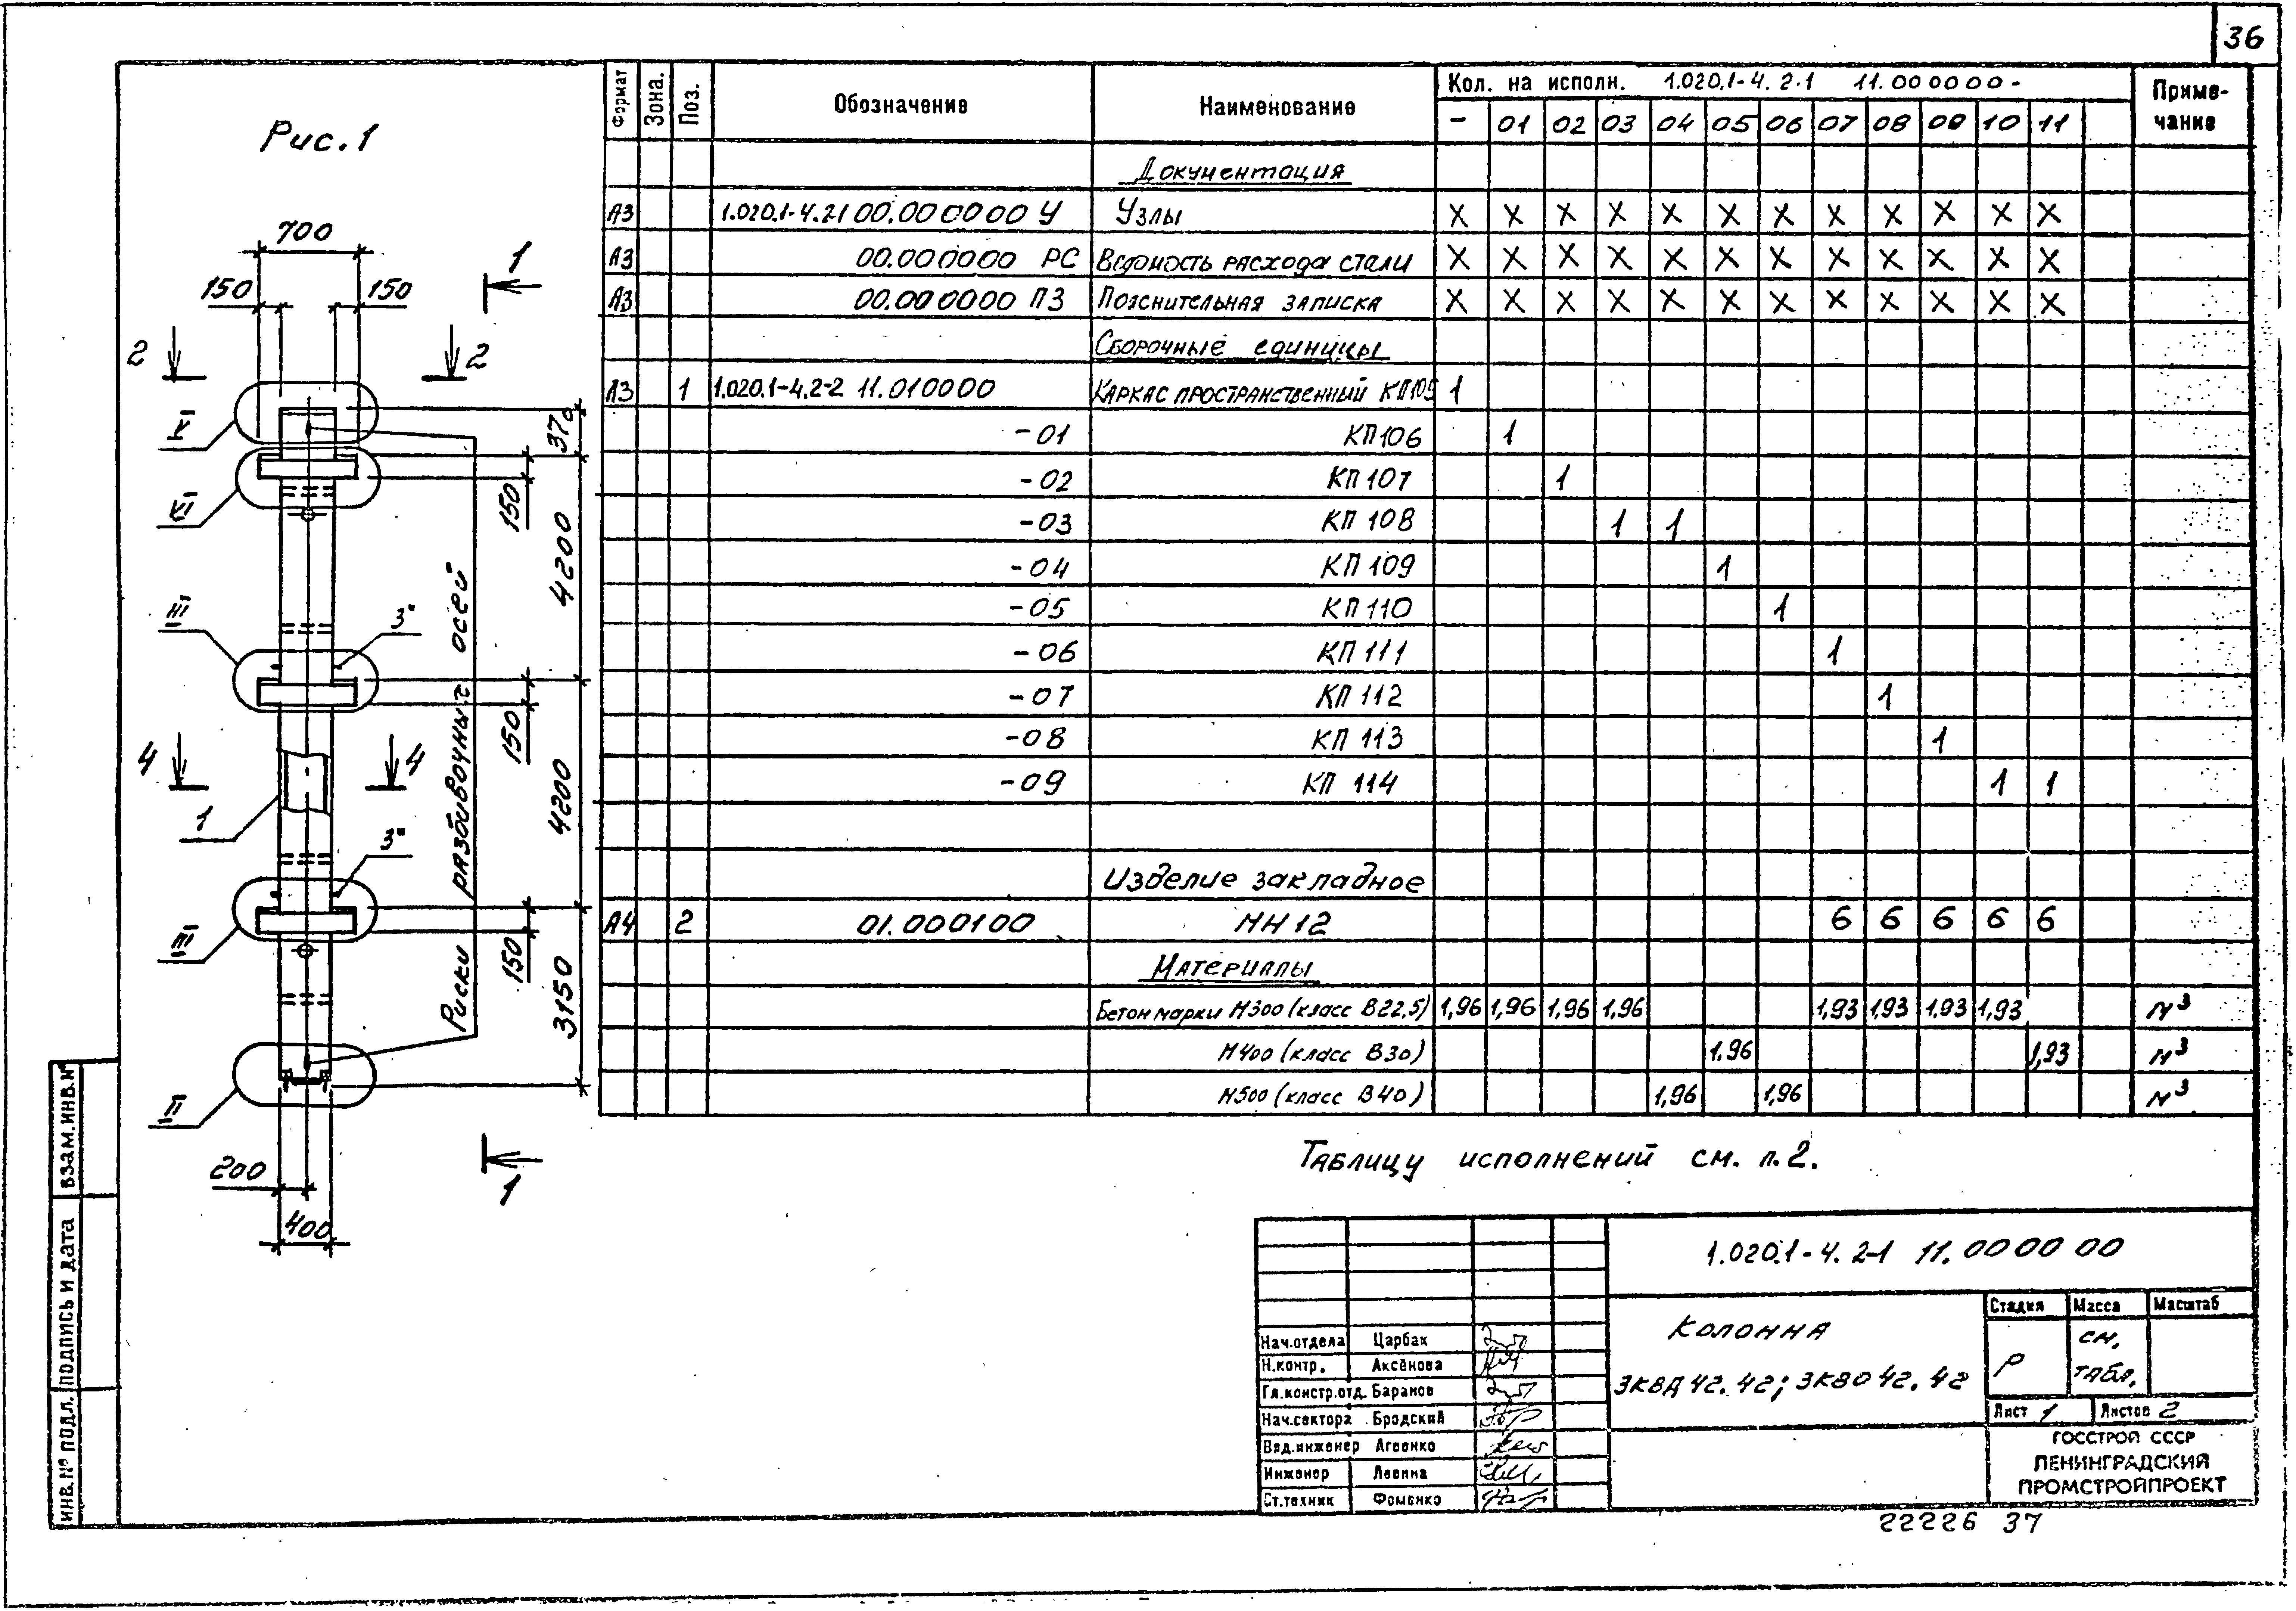 36
Рис. 1
700
150
150
1
2
2
V
VI
370
150
4200
III
3"
150
4
4
4200
1
3"
III
150
3150
II
Риски разбивочных осей
200
400
1
Формат Зона. Поз. Обозначение Наименование Кол. на исполн. 1.020.1-4. 2-1 11.000000- Приме-чание
- 01 02 03 04 05 06 07 08 09 10 11
Документация
А3 1.020.1-4.2-1 00.000000 У Узлы X X X X X X X X X X X X
А3 00.000000 РС Ведомость расхода стали X X X X X X X X X X X X
А3 00.000000 ПЗ Пояснительная записка X X X X X X X X X X X X
Сборочные единицы
А3 1 1.020.1-4.2-2 11.010000 Каркас пространственный КП105 1
-01 КП106 1
-02 КП107 1
-03 КП 108 1 1
-04 КП 109 1
-05 КП 110 1
-06 КП 111 1
-07 КП 112 1
-08 КП 113 1
-09 КП 114 1 1
Изделие закладное
А4 2 01.000100 МН 12 6 6 6 6 6
Материалы
Бетон марки М300 (класс В22,5) 1,96 1,96 1,96 1,96 1,93 1,93 1,93 1,93 м³
М400 (класс В30) 1,96 1,93 м³
М500 (класс В40) 1,96 1,96 м³
Таблицу исполнений см. л. 2.
1.020.1-4. 2-1 11.000000
Колонна
3КВД 42.42; 3КВО 42.42
Стадия Масса Масштаб
Р см. табл.
Лист 1 Листов 2
ГОССТРОЙ СССР
ЛЕНИНГРАДСКИЙ
ПРОМСТРОЙПРОЕКТ
Нач.отдела Царбах
Н.контр. Аксёнова
Гл.констр.отд. Баранов
Нач.сектора Бродский
Вед.инженер Агеенко
Инженер Левина
Ст.техник Фоменко
22226 37
ИНВ.№ ПОДЛ. ПОДПИСЬ И ДАТА ВЗАМ.ИНВ.№